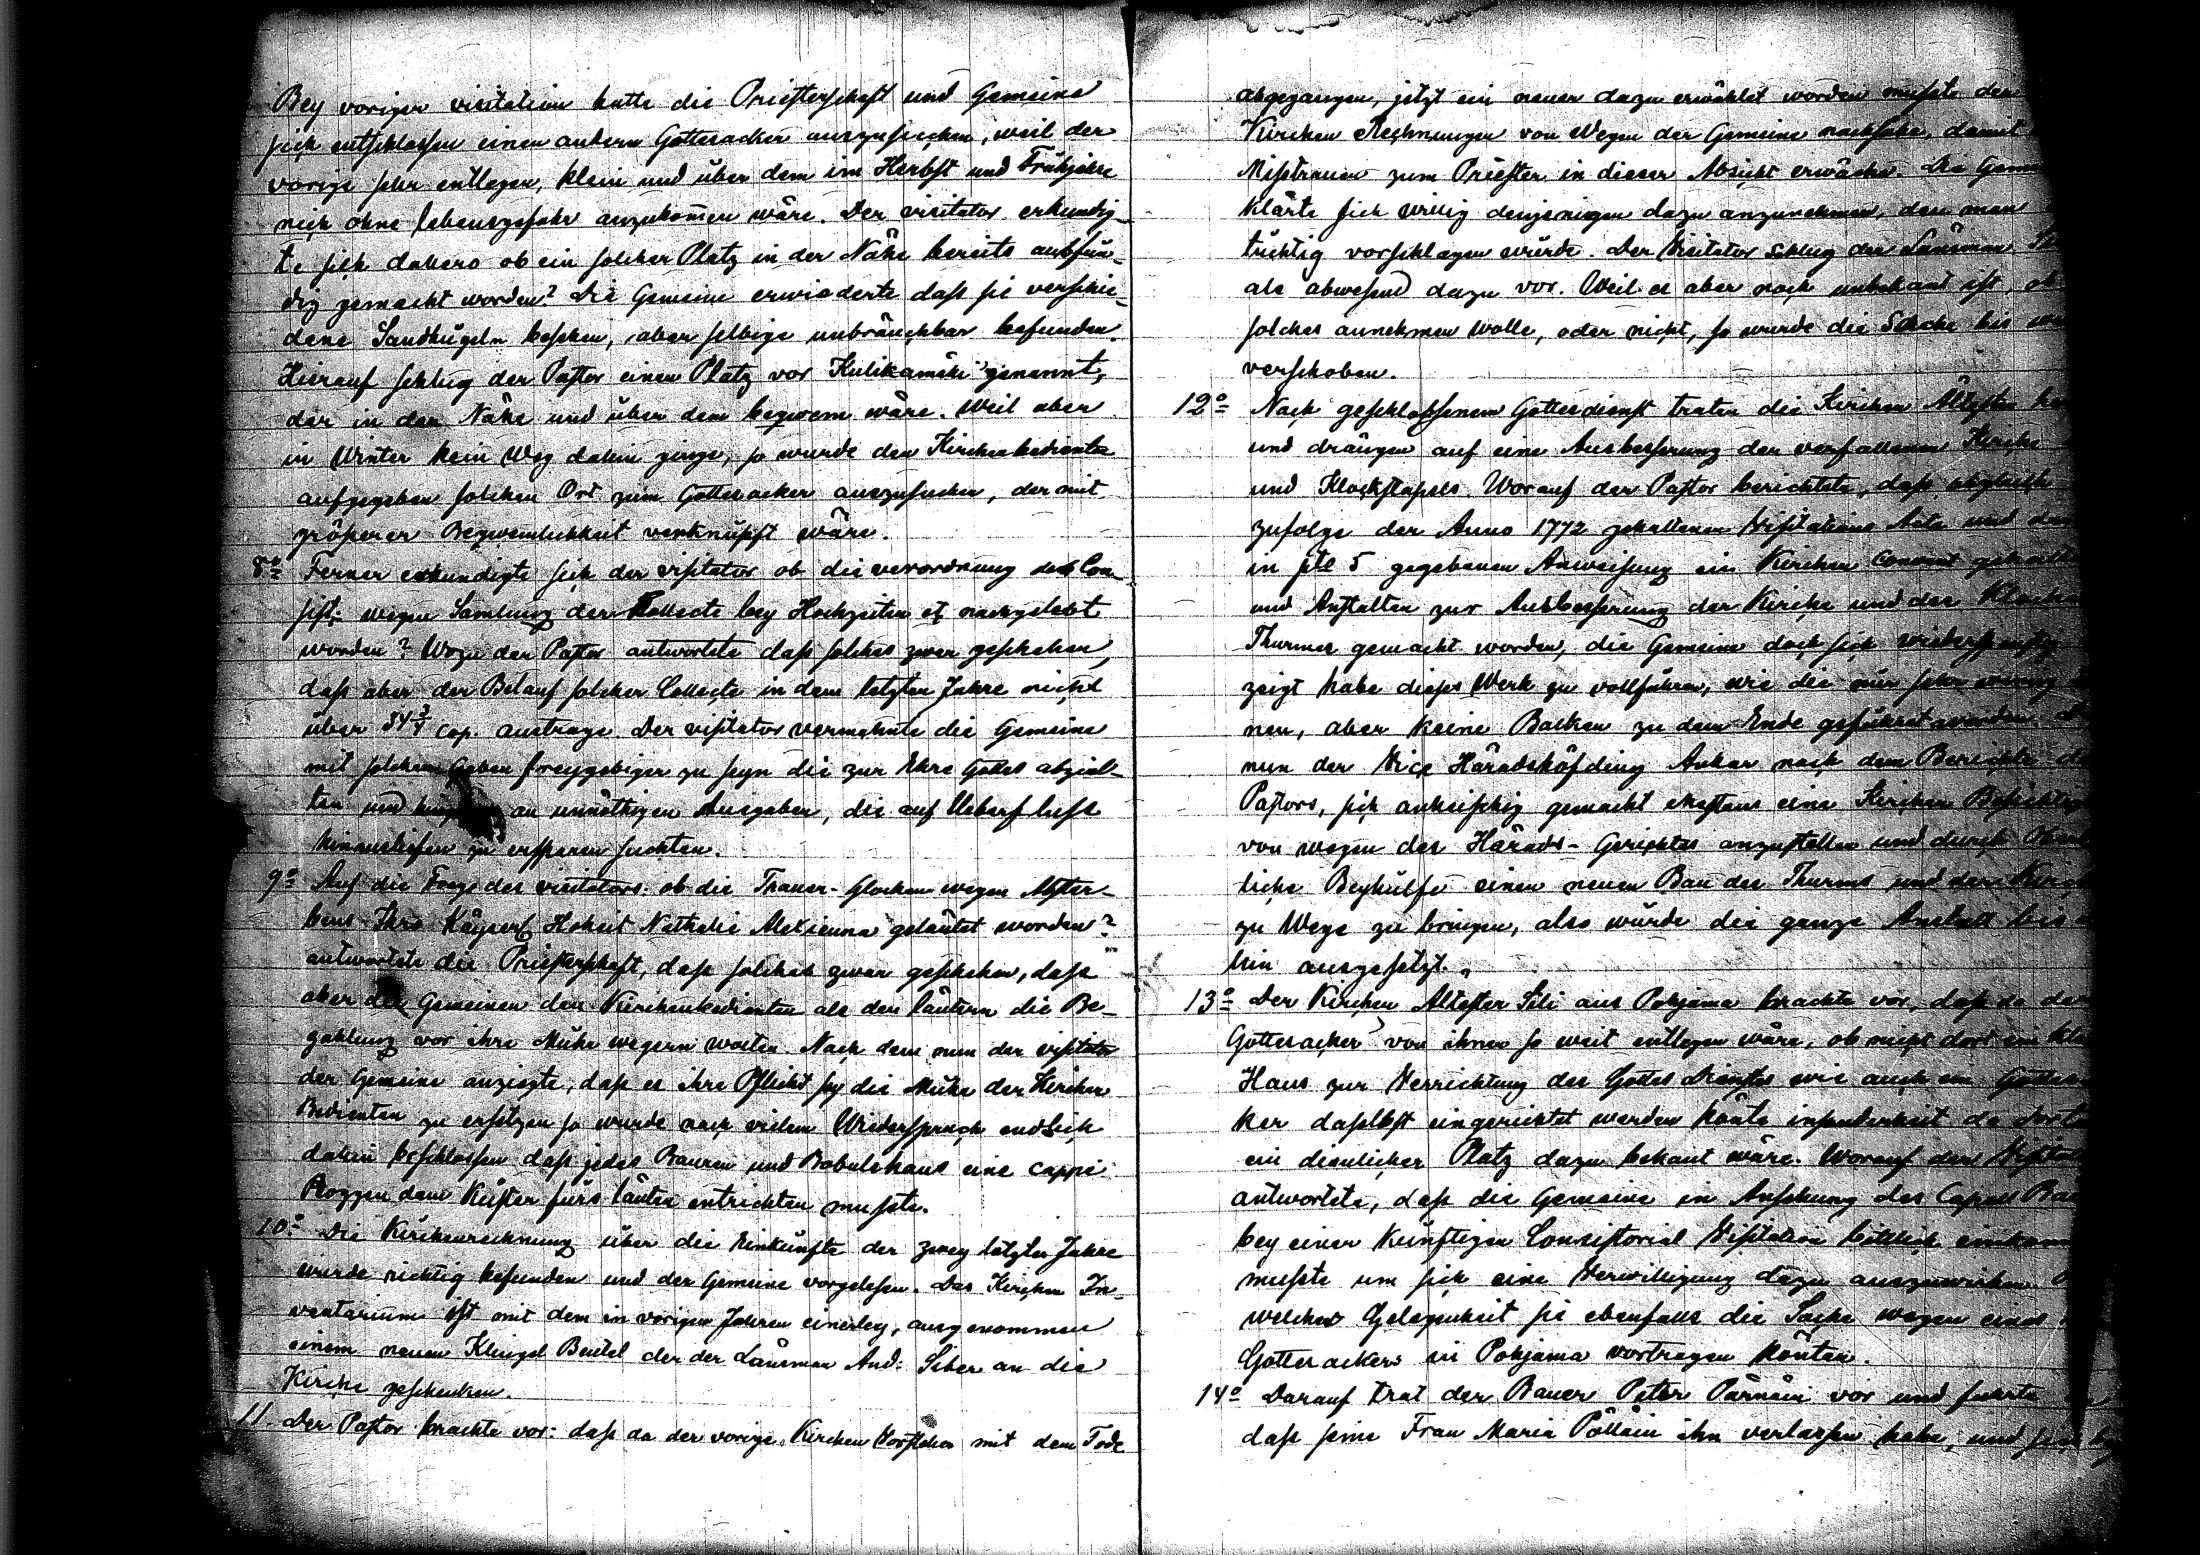 Bey voriger visitation hatte die Priesterschaft und Gemeine
sich entschlossen einen andern Gottesacker auszusuchen, weil der
vorige sehr entlegen, klein und über dem im Herbst und Frühjahr
nich ohne lebensgefahr anzukomen wäre. Der visitator erkundig-
te sich dahero ob ein solcher Platz in der Nähe bereits ausfün-
dig gemacht worden? Die Gemeine erwiederte daß sie verschie-
dene Sandhügeln besehen, aber selbige unbräuchbar befunden.
Hierauf schlug der Pastor einen Platz vor Kulikamäki genannt,
der in der Nähe und über dem beqwem wäre. Weil aber
in Winter kein Weg dahin ginge, so wurde den Kirchenbedienten
aufgegeben solchen Ort zum Gottesacker auszusuchen, der mit
größerer Beqwemlichkeit verknüpft wäre.
8º Ferner erkundigte sich der visitator ob die verordnung des Con-
sist: wegen Samlung der Kollecte bey Hochzeiten nachgelebt
worden? Wozu der Pastor antwortete daß solches zwar geschehen,
daß aber der Belauf solcher Collecte in dem letzten Jahre nicht
über 34 3/4 cop. austrage. Der visitator vermahnte die Gemeine
mit solchen Gaben freygebiger zu seyn die zur Ehre Gottes abziel-
ten und an unnöthigen Ausgaben, die auf Ueberfluß
hinausliefen zu ersparen suchten.
9º Auf die Frage des visitators: ob die Trauer-Glocken wegen Abster-
bens Ihro Käyserl Hoheit Nathalie Alexienna geläutet worden?
antwortete die Priesterschaft, daß solches zwar geschehen, daß
aber die Gemeinen den Kirchenbedienten als den läutern die Be-
zahlung vor ihre Mühe wegern wolten. Nach dem nun der visitator
der Gemeine anzeigte, daß es ihre Pflicht sey die Mühe der Kirchen
Bedienten zu ersetzen so wurde nach vielem Wiedersprach endlich
dahin beschlossen daß jedes Bauren und Bobulshaus eine cappe
Roggen dem Küster fürs läuten entrichten mußte.
10º Die Kirchenrechnung über die Einkünfte der zwey letzten Jahre
wurde richtig befunden und der Gemeine vorgelesen. Das Kirchen In-
ventarium ist mit dem in vorigen Jahren einerley, ausgenommen
einem neuen Klingel Beutel der der Länsman And: Siber an die
Kirche geschenken.
11. Der Pastor brachte vor: daß da der vorige Kirchen Vorsteher mit dem Tode
abgegangen, jetzt ein neuer dazu erwählet worden mußte der
Kirchen Rechnungen von Wegen der Gemeine nachsehe, damit
Mißtrauen zum Priester in dieser Absicht erwäche. Die Gem
klärte sich willig denjenigen dazu anzunehmen, den man
tüchtig vorschlagen würde. Der Visitator schlug der Länsman
als abwesend dazu vor. Weil es aber noch unbekant ist, ob
solches annehmen wolle, oder nicht, so wurde die Sache bis
verschoben.
12º Nach geschlossenem Gottesdienst traten die Kirchen Ältesten
und drängen auf eine Ausbesserung der verfallenen Kirche
und Klockstapels. Worauf der Pastor berichtete, daß obgleich
zufolge der Anno 1772 gehaltenen Visitations Acte und
in pto 5 gegebenen Anweisung ein Kirchen Convent gehalten
und Anstalten zur Ausbesserung der Kirche und des Klocken
Thurmes gemacht worden, die Gemeine doch sich wiederspenstig
zeigt habe dieses Werk zu vollführen, wie die nur sehr wenig
nen, aber keine Balken zu dem Ende geführet worden
nun der Vice Häradshöfding Ankar nach dem Berichte
Pastors, sich anheischig gemacht ehestens eine Kirchen Besichtig
von wegen des Härads-Gerichtes anzustellen und durch
liche Beyhülfe einen neuen Bau des Thurms und der Kirch
zu Wege zu bringen, also wurde die ganze Anstalt bis
hin ausgesetzt.
13º Der Kirchen Ältester Sili aus Pohjama brachte vor, daß da der
Gottesacker von ihnen so weit entlegen wäre, ob nicht dort ein
Haus zur Verrichtung des Gottes Dienstes wie auch ein Gottes
ker daselbst eingerichtet werden könte insonderheit da
ein dienlicher Platz dazu bekant wäre. Worauf der Visitator
antwortete, daß die Gemeine in Ansehung des Capell Bau
bey einer künftigen Consistorial Visitation bittlich einkom
mußte um sich eine Verwilligung dazu auszuwirken.
welcher Gelegenheit sie ebenfalls die Sache wegen eines
Gottesackers in Pohjama vortragen könten.
14º Darauf trat der Bauer Peter Pärnäin vor und
daß seine Frau Maria Pölläin ihn verlassen habe, und